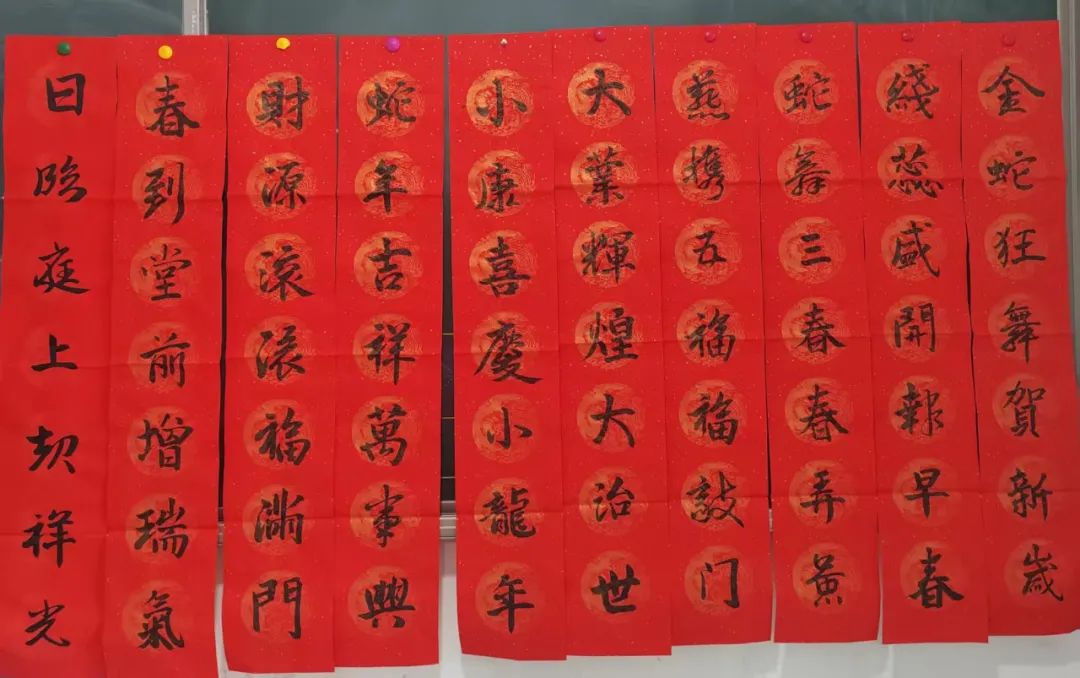 金蛇狂舞賀新歲
綫蕊盛開報早春
蛇舞三春春弄黄
燕携五福福敲门
大業輝煌大治世
小康喜慶小龍年
蛇年吉祥萬事興
財源滚滚福滿門
春到堂前增瑞氣
日临庭上起祥光